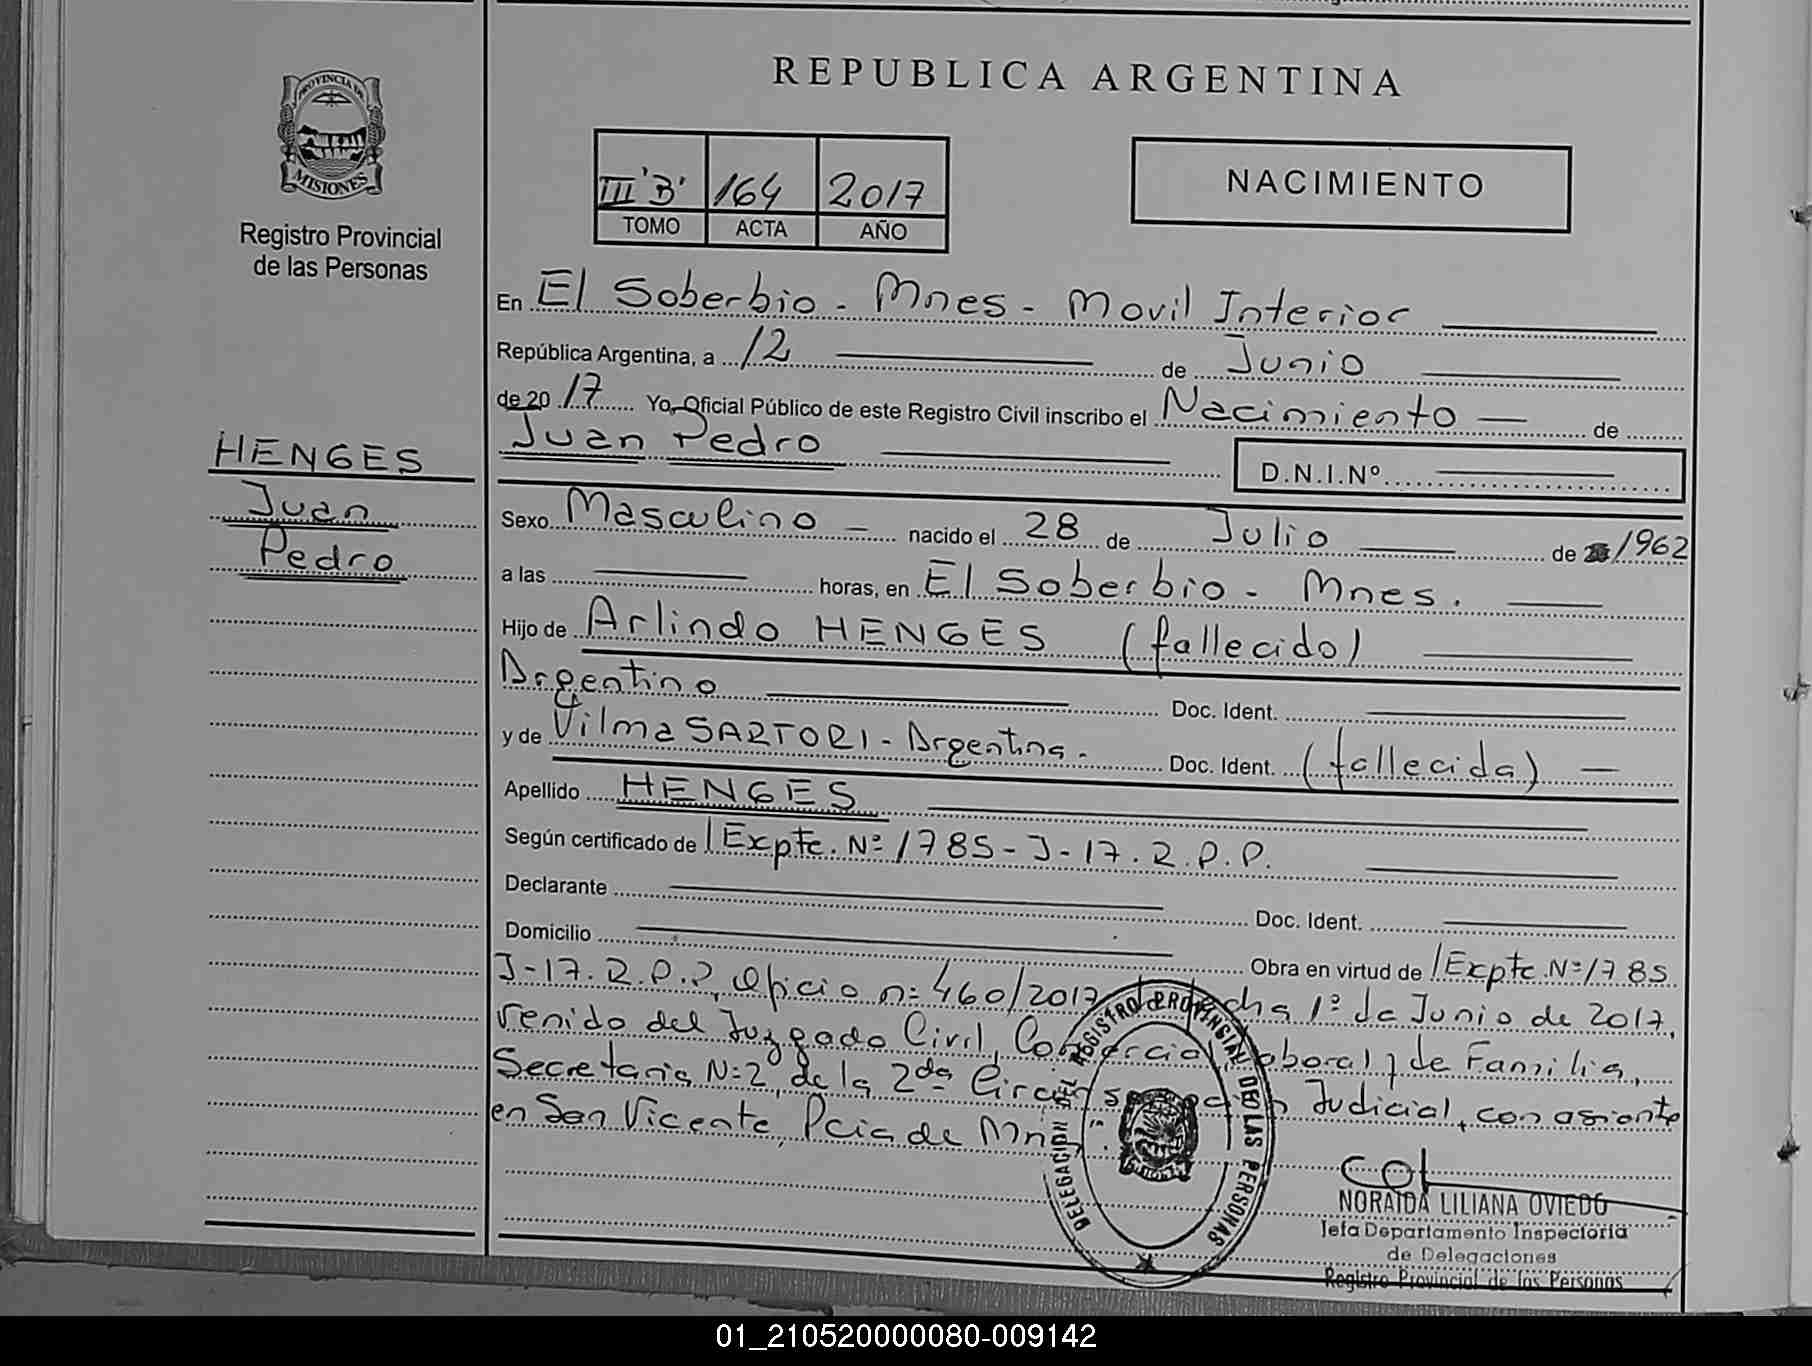 REPUBLICA ARGENTINA
PROVINCIA DE
MISIONES
Registro Provincial
de las Personas
III 'B' 164 2017
TOMO ACTA AÑO
NACIMIENTO
En El Soberbio - Mnes - Movil Interior
República Argentina, a 12 de Junio
de 20 17 Yo, Oficial Público de este Registro Civil inscribo el Nacimiento de
Juan Pedro D.N.I.Nº
HENGES
Juan
Pedro
Sexo Masculino nacido el 28 de Julio de 1962
a las horas, en El Soberbio - Mnes.
Hijo de Arlindo HENGES (fallecido)
Argentino Doc. Ident.
y de Vilma SARTORI - Argentina. Doc. Ident. (fallecida)
Apellido HENGES
Según certificado de Expte. Nº 1785-J-17. R.P.P.
Declarante Doc. Ident.
Domicilio
Obra en virtud de Expte. Nº 1785
J-17. R.P.P, Oficio nº 460/2017 cha 1º de Junio de 2017,
venido del Juzgado Civil, Comercial, Laboral y de Familia,
Secretaria Nº 2, de la 2da Circunscripción Judicial, con asiento
en San Vicente, Pcia de Mnes.
DELEGACION DEL REGISTRO PROVINCIAL DE LAS PERSONAS
NORAIDA LILIANA OVIEDO
Jefa Departamento Inspectoria
de Delegaciones
Registro Provincial de las Personas
01_210520000080-009142